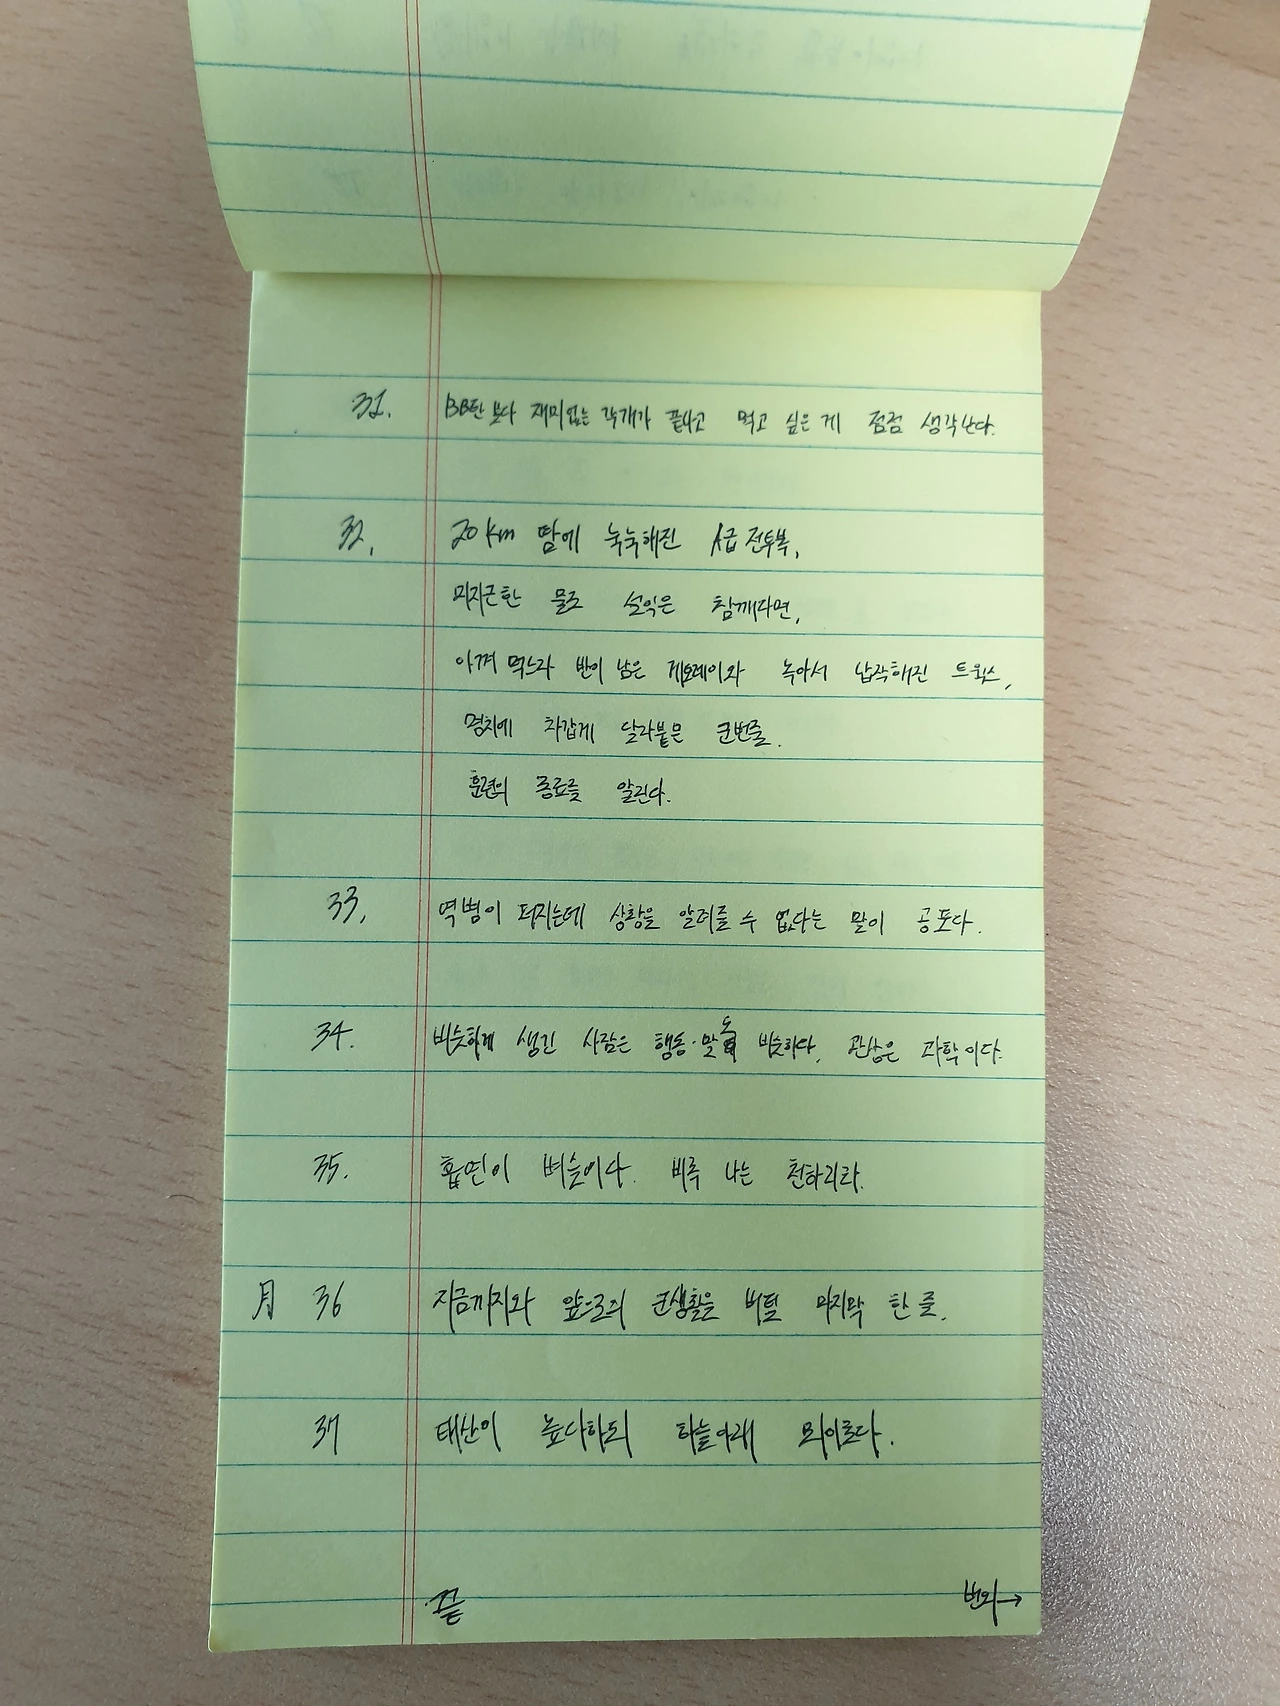 31. BB탄 보다 재미없는 각개가 끝나고 먹고 싶은 게 점점 생각난다.
32. 20km 땀에 눅눅해진 A급 전투복,
미지근한 물로 설익은 참깨라면,
아껴 먹느라 반이 남은 게토레이와 녹아서 납작해진 트윅스,
명치에 차갑게 달라붙은 군번줄.
훈련의 종료를 알린다.
33. 역병이 퍼지는데 상황을 알려줄 수 없다는 말이 공포다.
34. 비슷하게 생긴 사람은 행동·말도 비슷하다. 관상은 과학이다.
35. 흡연이 벼슬이다. 비록 나는 천하리라.
月 36 지금까지와 앞으로의 군생활을 버틸 마지막 한 줄.
37 태산이 높다하되 하늘아래 뫼이로다.
끝 번외→